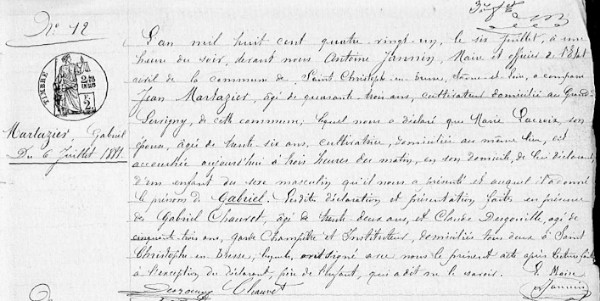 No 42
TIMBRE
Martazier, Gabriel
Du 6 Juillet 1881.
L'an mil huit cent quatre vingt un, le six Juillet, à une
heure du soir, devant nous Antoine Jannin, Maire et officier de l'État
civil de la commune de Saint Christophe en Bresse, Saône-et-Loire, a comparu
Jean Martazier, âgé de quarante trois ans, cultivateur domicilié au Grand
Servigny, de cette commune, lequel nous a déclaré que Marie son
épouse, âgée de trente-six ans, cultivatrice, domiciliée au même lieu, est
accouchée aujourd'hui à trois heures du matin, en son domicile, de lui déclarant,
d'un enfant du sexe masculin qu'il nous a présenté et auquel il a donné
le prénom de Gabriel. Lesdites déclaration et présentation faites en présence
de Gabriel Chauvot, âgé de trente deux ans, et Claude âgé de
cinquante trois ans, garde Champêtre et Instituteur, domiciliés tous deux à Saint
Christophe en Bresse, lesquels ont signé avec nous le présent acte après lecture faite
à l'exception du déclarant, père de l'enfant, qui a dit ne le savoir. Le Maire
Chauvot Jannin